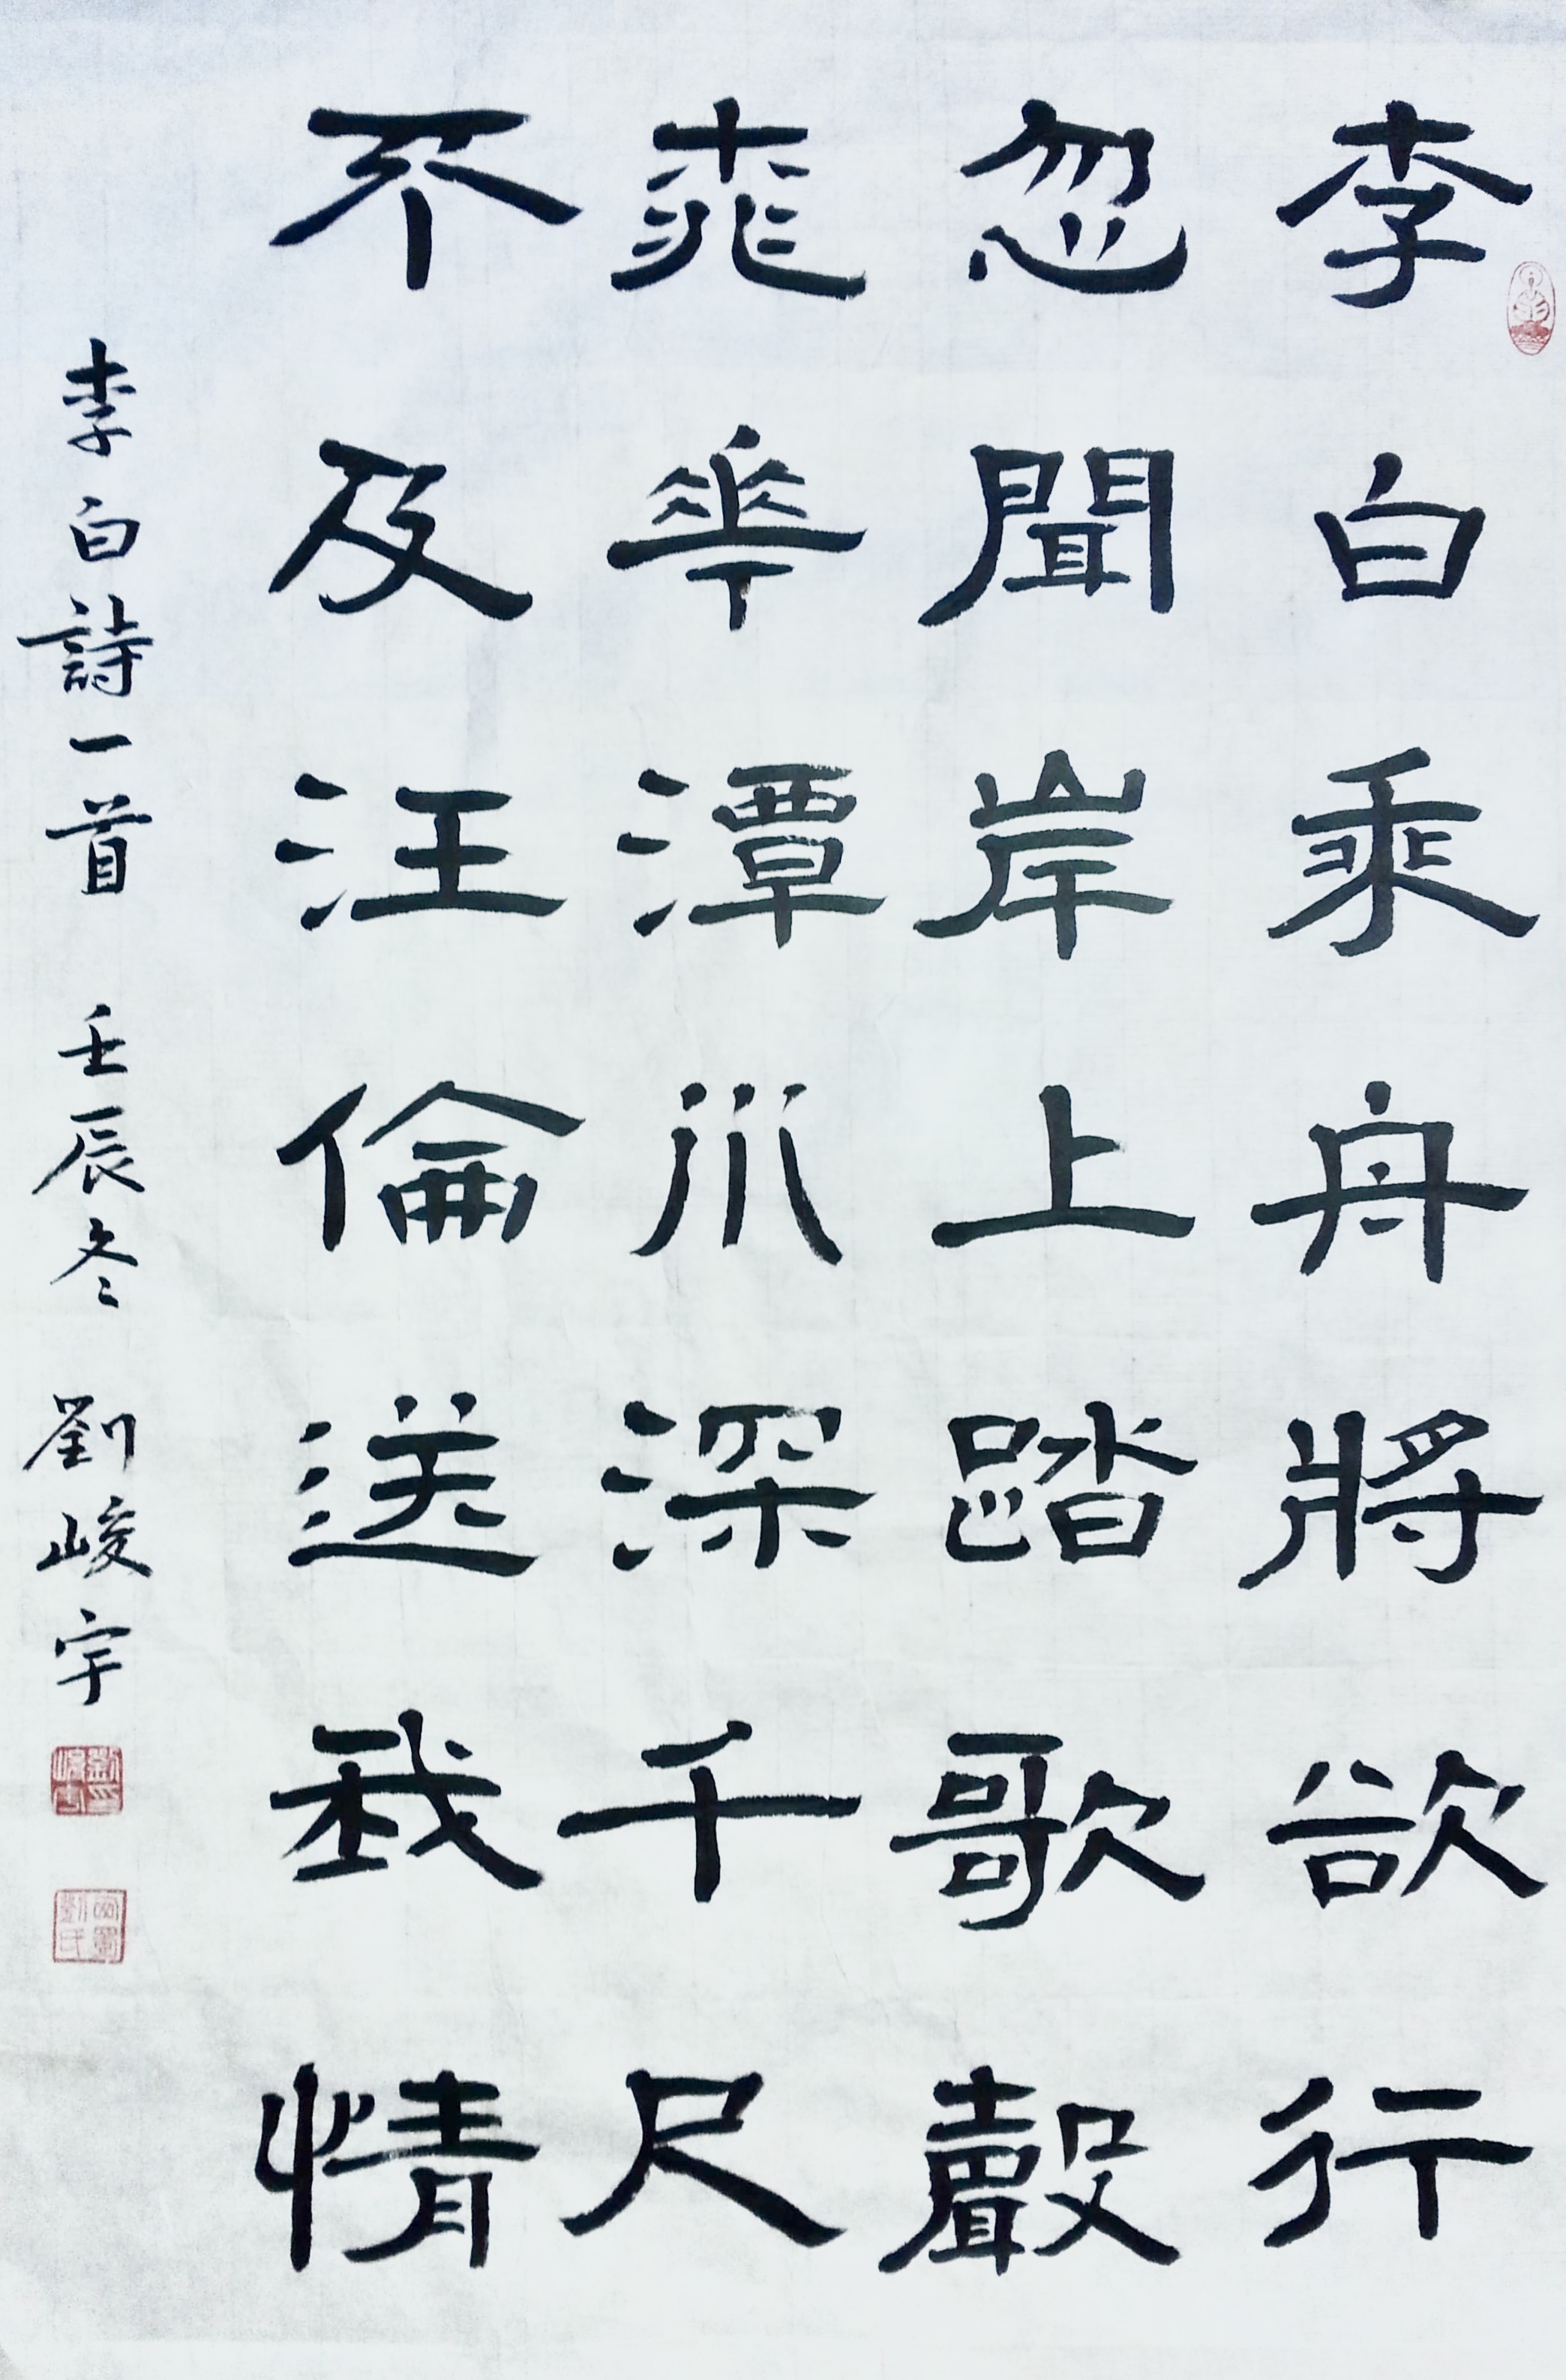 李白乘舟將欲行
忽聞岸上踏歌聲
桃華潭水深千尺
不及汪倫送我情
李白詩一首 壬辰冬 劉峻宇